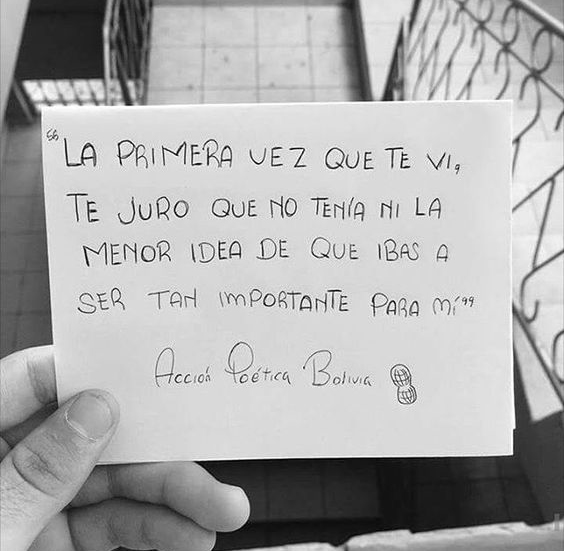 "LA PRIMERA VEZ QUE TE VI,
TE JURO QUE NO TENÍA NI LA
MENOR IDEA DE QUE IBAS A
SER TAN IMPORTANTE PARA MÍ"
Acción Poética Bolivia